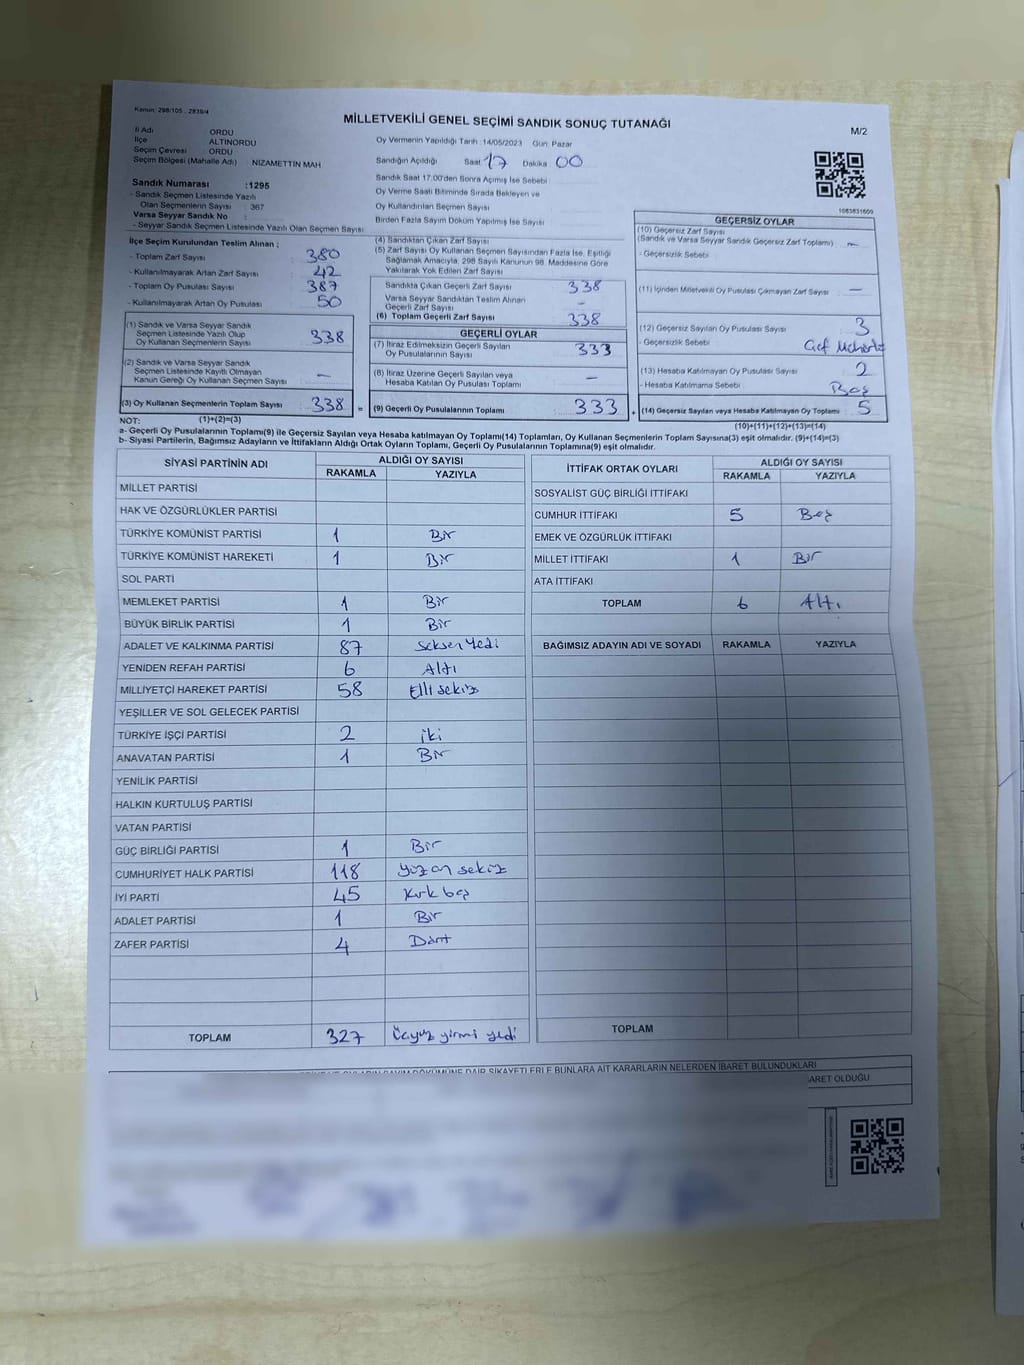 Kanun: 298/105 , 2839/4
MİLLETVEKİLİ GENEL SEÇİMİ SANDIK SONUÇ TUTANAĞI
M/2
İl Adı ORDU
İlçe ALTINORDU
Seçim Çevresi : ORDU
Seçim Bölgesi (Mahalle Adı) : NIZAMETTİN MAH
Sandık Numarası :1295
- Sandık Seçmen Listesinde Yazılı
Olan Seçmenlerin Sayısı : 367
Varsa Seyyar Sandık No :
- Seyyar Sandık Seçmen Listesinde Yazılı Olan Seçmen Sayısı
Oy Vermenin Yapıldığı Tarih : 14/05/2023 Gün: Pazar
Sandığın Açıldığı Saat 17 Dakika 00
Sandık Saat 17.00'den Sonra Açımış İse Sebebi
Oy Verme Saati Bitiminde Sırada Bekleyen ve
Oy Kullandırılan Seçmen Sayısı
Birden Fazla Sayım Döküm Yapılmış İse Sayısı
1083831609
İlçe Seçim Kurulundan Teslim Alınan ;
- Toplam Zarf Sayısı 380
- Kullanılmayarak Artan Zarf Sayısı 42
- Toplam Oy Pusulası Sayısı 387
- Kullanılmayarak Artan Oy Pusulası 50
(1) Sandık ve Varsa Seyyar Sandık
Seçmen Listesinde Yazılı Olup
Oy Kullanan Seçmenlerin Sayısı 338
(2) Sandık ve Varsa Seyyar Sandık
Seçmen Listesinde Kayıtlı Olmayan
Kanun Gereği Oy Kullanan Seçmen Sayısı —
(3) Oy Kullanan Seçmenlerin Toplam Sayısı 338 =
(4) Sandıktan Çıkan Zarf Sayısı
(5) Zarf Sayısı Oy Kullanan Seçmen Sayısından Fazla İse, Eşitliği
Sağlamak Amacıyla; 298 Sayılı Kanunun 98. Maddesine Göre
Yakılarak Yok Edilen Zarf Sayısı
Sandıkta Çıkan Geçerli Zarf Sayısı 338
Varsa Seyyar Sandıktan Teslim Alınan
Geçerli Zarf Sayısı -
(6) Toplam Geçerli Zarf Sayısı 338
GEÇERLİ OYLAR
(7) İtiraz Edilmeksizin Geçerli Sayılan
Oy Pusulalarının Sayısı 333
(8) İtiraz Üzerine Geçerli Sayılan veya
Hesaba Katılan Oy Pusulası Toplamı —
(9) Geçerli Oy Pusulalarının Toplamı 333 +
GEÇERSİZ OYLAR
(10) Geçersiz Zarf Sayısı
(Sandık ve Varsa Seyyar Sandık Geçersiz Zarf Toplamı) —
- Geçersizlik Sebebi
(11) İçinden Milletvekili Oy Pusulası Çıkmayan Zarf Sayısı —
(12) Geçersiz Sayılan Oy Pusulası Sayısı 3
- Geçersizlik Sebebi
(13) Hesaba Katılmayan Oy Pusulası Sayısı 2
- Hesaba Katılmama Sebebi Boş
(14) Geçersiz Sayılan veya Hesaba Katılmayan Oy Toplamı 5
NOT: (1)+(2)=(3) (10)+(11)+(12)+(13)=(14)
a- Geçerli Oy Pusulalarının Toplamı(9) ile Geçersiz Sayılan veya Hesaba katılmayan Oy Toplamı(14) Toplamları, Oy Kullanan Seçmenlerin Toplam Sayısına(3) eşit olmalıdır. (9)+(14)=(3)
b- Siyasi Partilerin, Bağımsız Adayların ve İttifakların Aldığı Ortak Oyların Toplamı, Geçerli Oy Pusulalarının Toplamına(9) eşit olmalıdır.
SİYASİ PARTİNİN ADI ALDIĞI OY SAYISI
RAKAMLA YAZIYLA
MİLLET PARTİSİ
HAK VE ÖZGÜRLÜKLER PARTİSİ
TÜRKİYE KOMÜNİST PARTİSİ 1 Bir
TÜRKİYE KOMÜNİST HAREKETİ 1 Bir
SOL PARTİ
MEMLEKET PARTİSİ 1 Bir
BÜYÜK BİRLİK PARTİSİ 1 Bir
ADALET VE KALKINMA PARTİSİ 87 Seksen Yedi
YENİDEN REFAH PARTİSİ 6 Altı
MİLLİYETÇİ HAREKET PARTİSİ 58 Elli sekiz
YEŞİLLER VE SOL GELECEK PARTİSİ
TÜRKİYE İŞÇİ PARTİSİ 2 iki
ANAVATAN PARTİSİ 1 Bir
YENİLİK PARTİSİ
HALKIN KURTULUŞ PARTİSİ
VATAN PARTİSİ
GÜÇ BİRLİĞİ PARTİSİ 1 Bir
CUMHURİYET HALK PARTİSİ 118 Yüzon sekiz
İYİ PARTİ 45 Kırk beş
ADALET PARTİSİ 1 Bir
ZAFER PARTİSİ 4 Dört
TOPLAM 327 Üçyüz yirmi yedi
İTTİFAK ORTAK OYLARI ALDIĞI OY SAYISI
RAKAMLA YAZIYLA
SOSYALİST GÜÇ BİRLİĞİ İTTİFAKI
CUMHUR İTTİFAKI 5 Beş
EMEK VE ÖZGÜRLÜK İTTİFAKI
MİLLET İTTİFAKI 1 Bir
ATA İTTİFAKI
TOPLAM 6 Altı
BAĞIMSIZ ADAYIN ADI VE SOYADI RAKAMLA YAZIYLA
TOPLAM
DÖKÜMÜNE DAİR ŞİKAYETLERLE BUNLARA AİT KARARLARIN NELERDEN İBARET BULUNDUKLARI
OLDUĞU